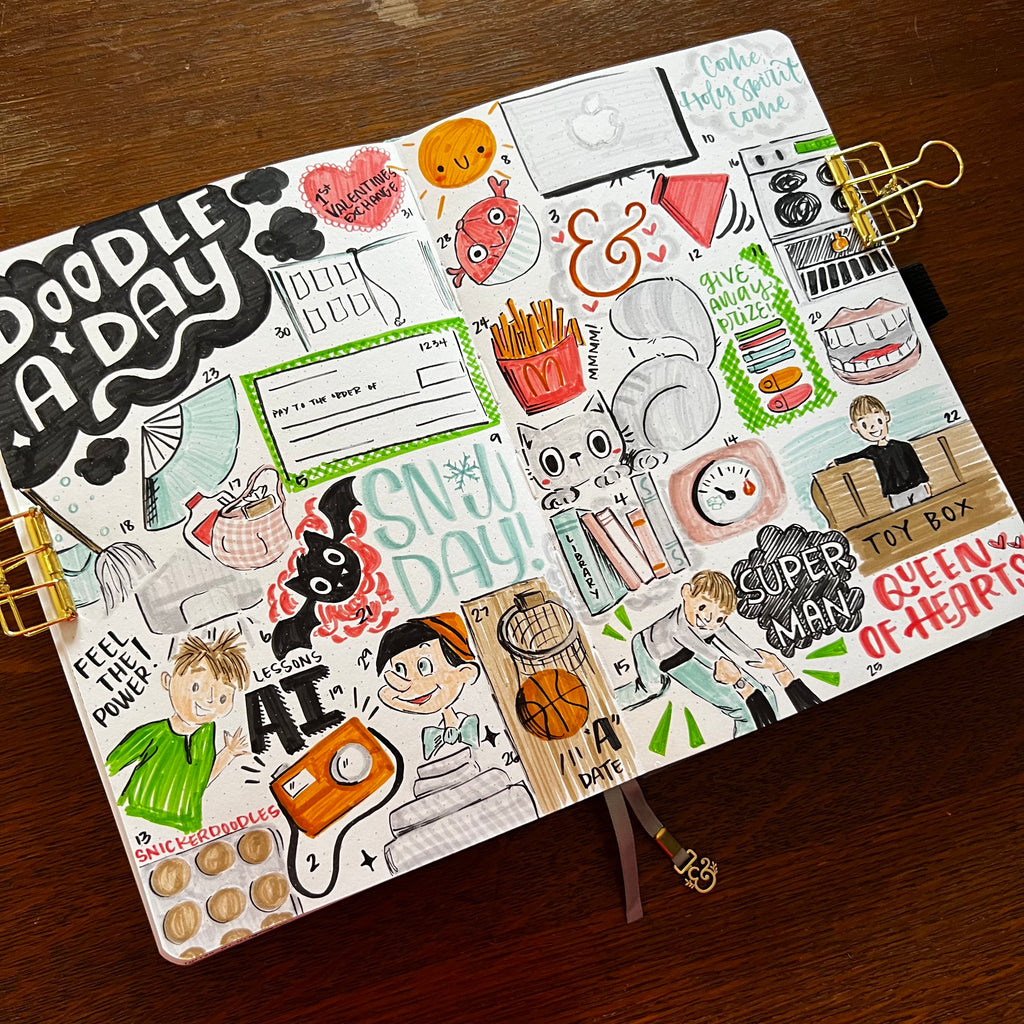 DOODLE
A
DAY
1st
VALENTINES
EXCHANGE
31
30
1234
PAY TO THE ORDER OF
5
23
17
18
9
SNOW
DAY!
6
21
FEEL
THE
POWER!
LESSONS
AI
19
29
2
26
13
SNICKERDOODLES
8
28
24
MMMM!
3
&
7
10
Come,
Holy Spirit
come
16
12
11
GIVE-
AWAY
PRIZE!
20
1
14
4
LIBRARY
22
TOY BOX
SUPER
MAN
QUEEN
OF HEARTS
25
15
27
"A"
DATE